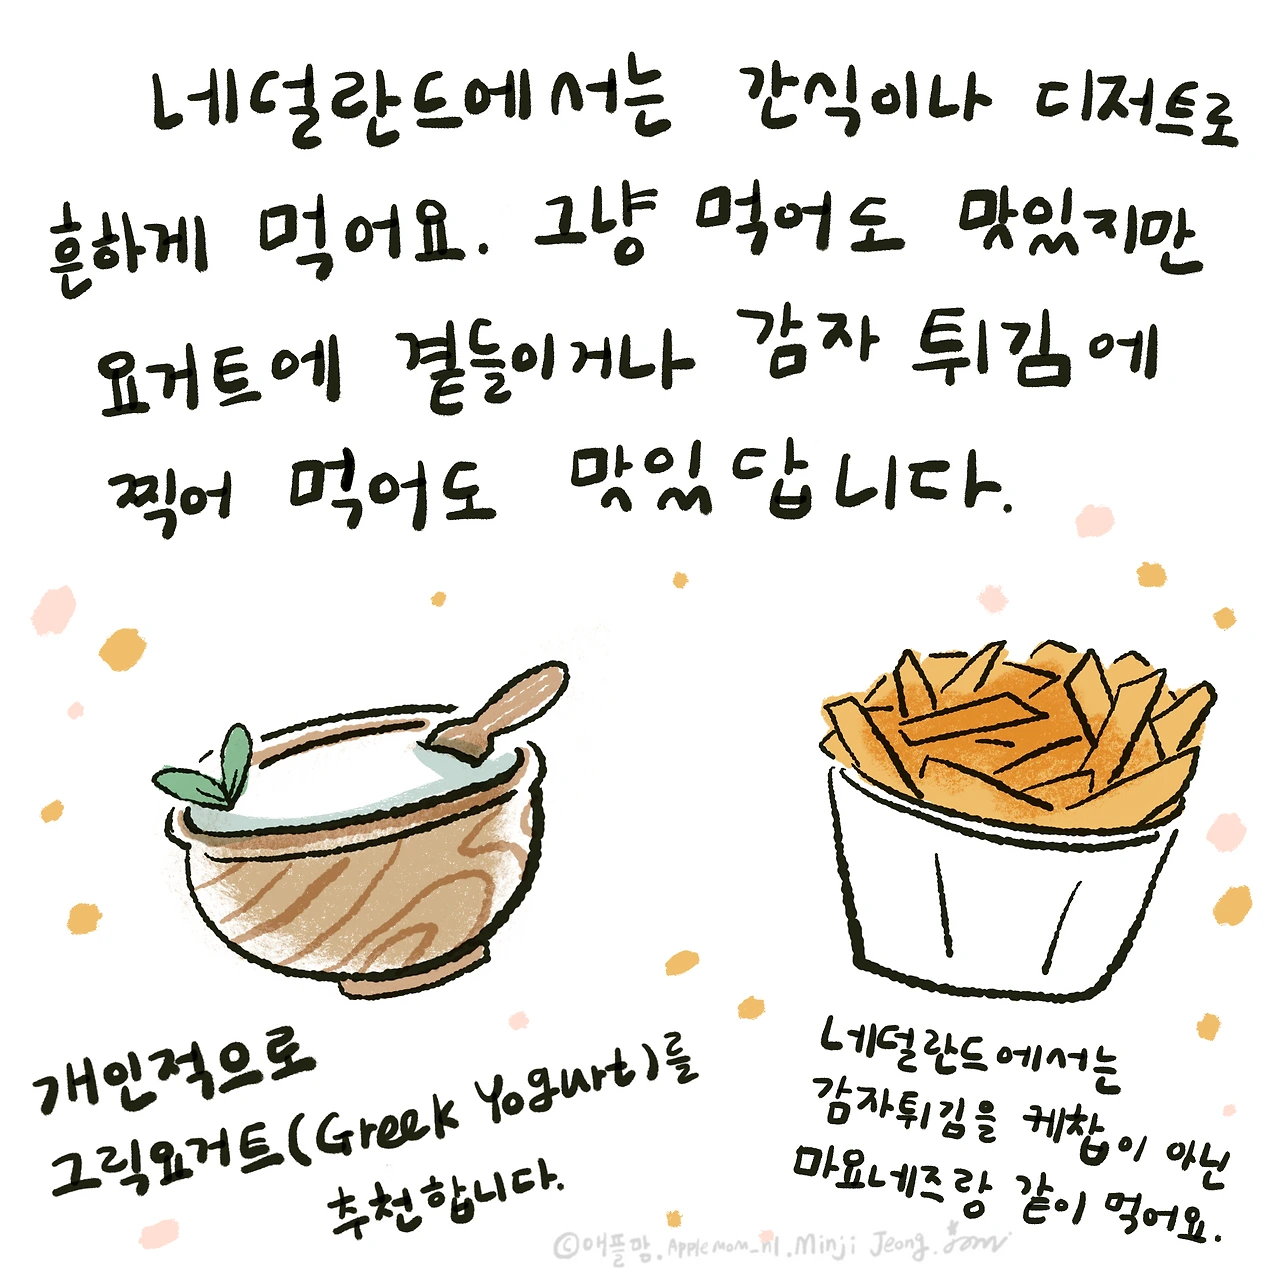 네덜란드에서는 간식이나 디저트로
흔하게 먹어요. 그냥 먹어도 맛있지만
요거트에 곁들이거나 감자 튀김에
찍어 먹어도 맛있답니다.
개인적으로
그릭요거트(Greek Yogurt)를
추천합니다.
네덜란드에서는
감자튀김을 케찹이 아닌
마요네즈랑 같이 먹어요.
©애플맘.Applemom_nl.Minji Jeong.